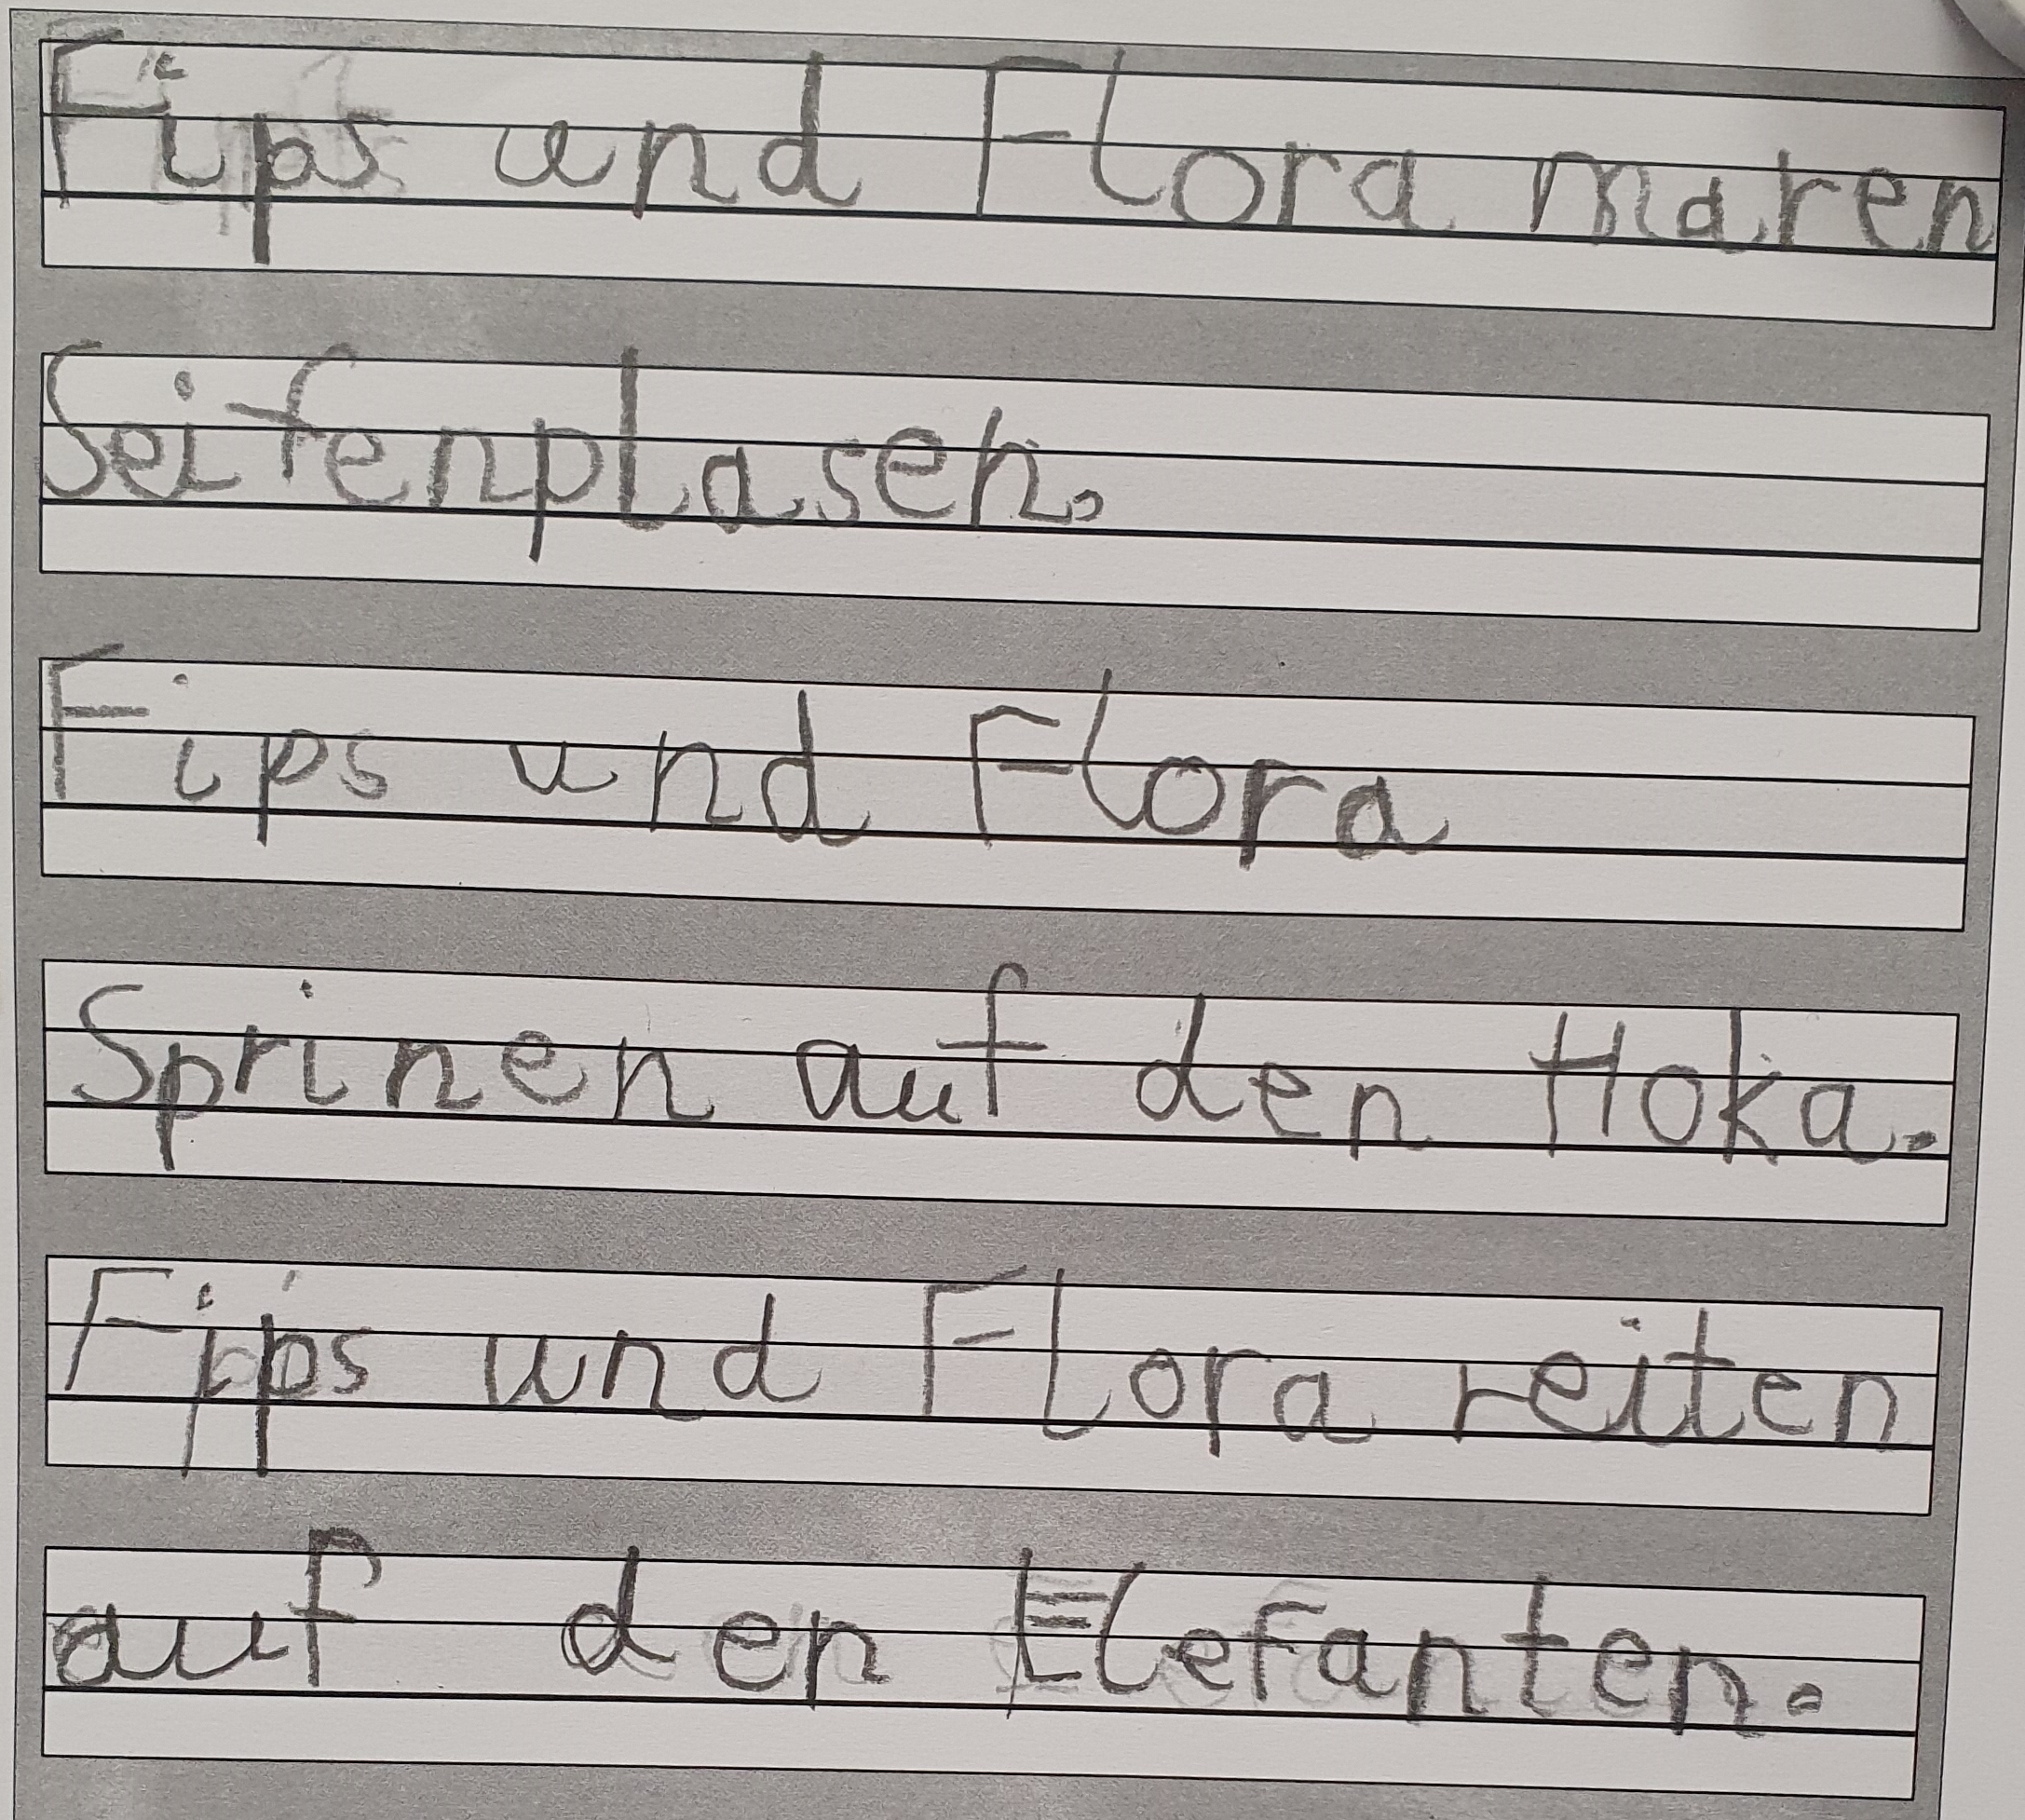 Fips und Flora maren
Seifenplasen.
Fips und Flora
Sprinen auf den Hoka.
Fips und Flora reiten
auf den Elefanten.